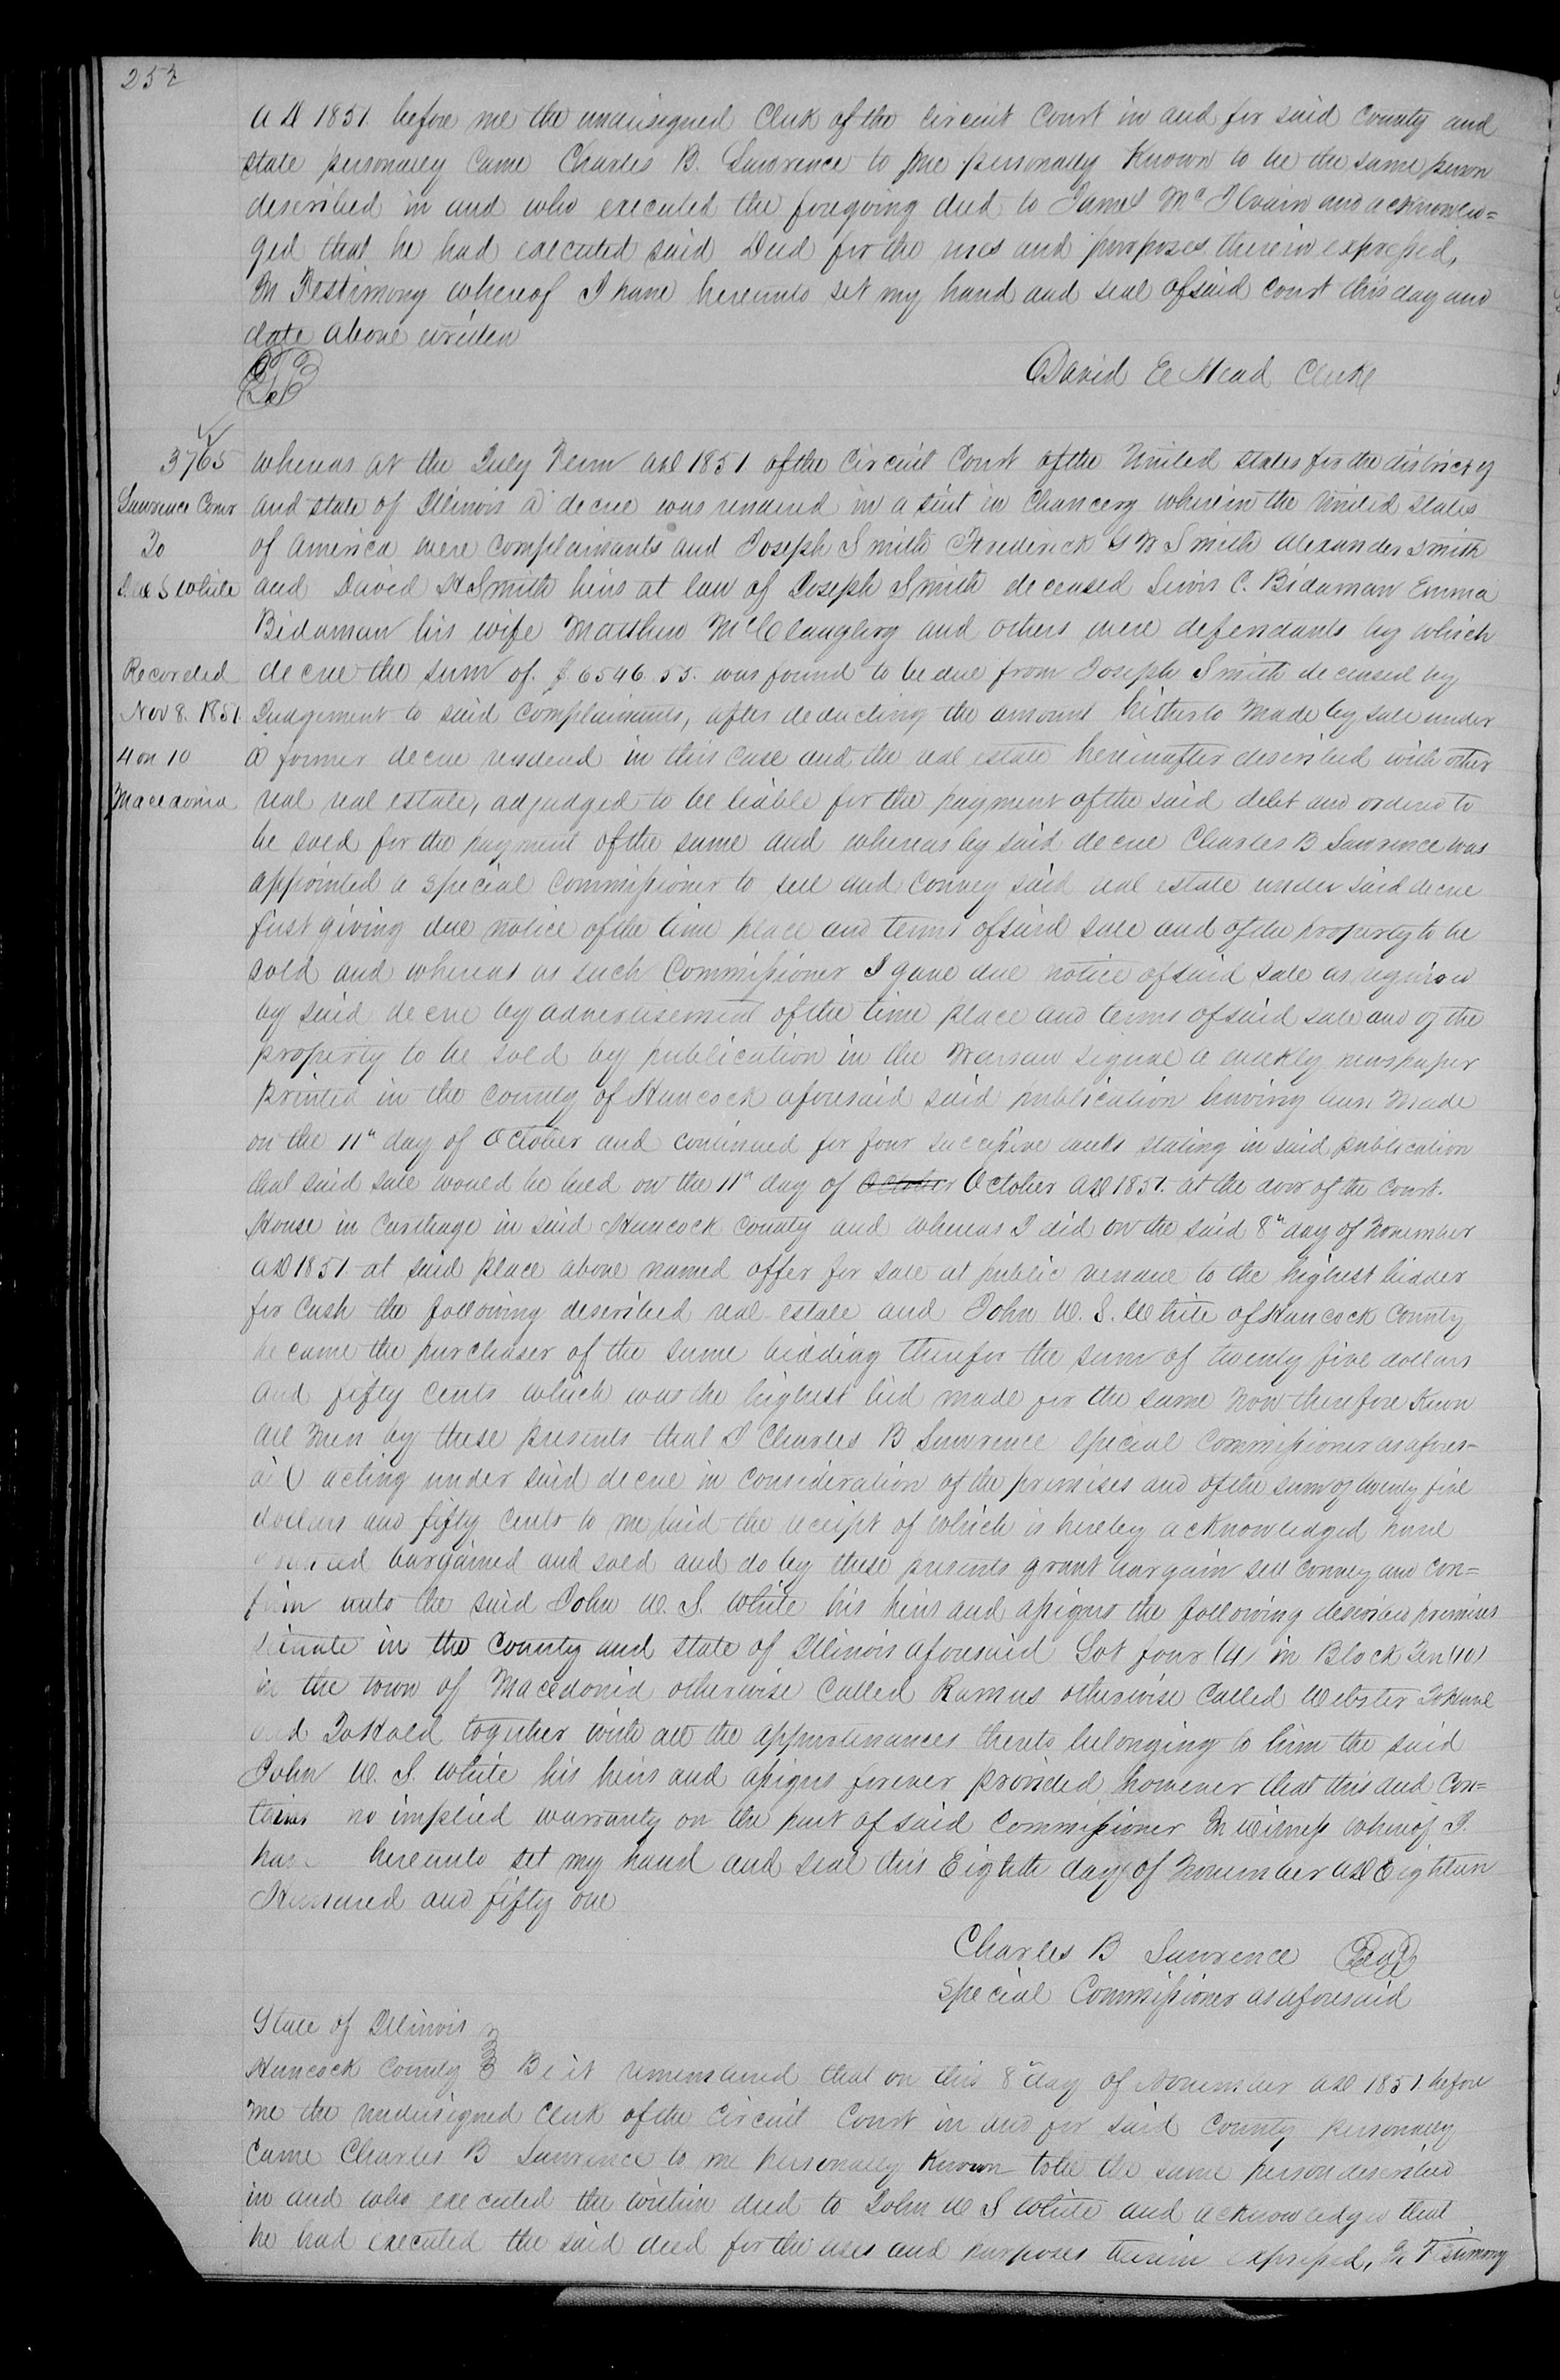 252
A D 1851. before me the undersigned Clerk of the Circuit Court in and for said County and
state personally Came Charles B. Lawrence to me personally Known to be the same person
described in and who executed the foregoing deed to James Mc Ilvain and acknowled=
ged that he had executed said Deed for the uses and purposes therein expressed,
In Testimony whereof I have hereunto set my hand and seal of said Court this day and
date above written
David E Head Clerk
3765
Lawrence Comr
To
J W S White
Recorded
Nov 8. 1851.
4 on 10
Macedonia
whereas at the July Term AD 1851 of the Circuit Court of the United States for the district of
and state of Illinois a decree was rendered in a suit in Chancery wherein the United States
of America were Complainants and Joseph Smith Frederick G W Smith Alexander Smith
and David H Smith heirs at law of Joseph Smith deceased Lewis C. Bidaman Emma
Bidaman his wife Matthew McClaughrry and others were defendants by which
decree the sum of $6546.55. was found to be due from Joseph Smith deceased by
Judgement to said Complainants, after deducting the amount hitherto made by sale under
a former decree rendered in this case and the real estate hereinafter described with other
real real estate, adjudged to be liable for the payment of the said debt and ordered to
be sold for the payment of the same and whereas by said decree Charles B Lawrence was
appointed a special Commissioner to sell and convey said real estate under said decree
first giving due notice of the time place and terms of said sale and of the property to be
sold and whereas as such Commissioner I gave due notice of said sale as required
by said decree by advertisement of the time place and terms of said sale and of the
property to be sold by publication in the Warsaw Signal a weekly newspaper
printed in the County of Hancock aforesaid said publication having been made
on the 11th day of October and continued for four successive weeks stating in said publication
that said sale would be held on the 11th day of October October AD 1851. at the door of the Court.
House in Carthage in said Hancock County and whereas I did on the said 8th day of November
AD 1851. at said place above named offer for sale at public vendue to the highest bidder
for cash the following described real estate and John W. S. White of Hancock County
became the purchaser of the same bidding therefor the sum of twenty five dollars
and fifty cents which was the highest bid made for the same Now therefore Know
all men by these presents that I Charles B Lawrence special Commissioner as afores-
aid acting under said decree in consideration of the premises and of the sum of twenty five
dollars and fifty cents to me paid the receipt of which is hereby acknowledged have
granted bargained and sold and do by these presents grant bargain sell convey and con=
firm unto the said John W. S. White his heirs and assigns the following described premises
situate in the County and state of Illinois aforesaid Lot four (4) in Block Ten (10)
in the town of Macedonia otherwise Called Ramus otherwise Called Webster To have
and To Hold together with all the appurtenances thereto belonging to him the said
John W. S. White his heirs and assigns forever provided however that this deed con=
tains no implied warranty on the part of said Commissioner In witness whereof I.
have hereunto set my hand and seal this Eighth day of November AD Eighteen
Hundred and fifty one
Charles B Lawrence Seal
Special Commissioner as aforesaid
State of Illinois
Hancock County Be it remembered that on this 8th day of November AD 1851. before
me the undersigned Clerk of the Circuit Court in and for said County personally
Came Charles B Lawrence to me personally Known to be the same person described
in and who executed the within deed to John W S White and acknowledged that
he had executed the said deed for the uses and purposes therein expressed, In Testimony